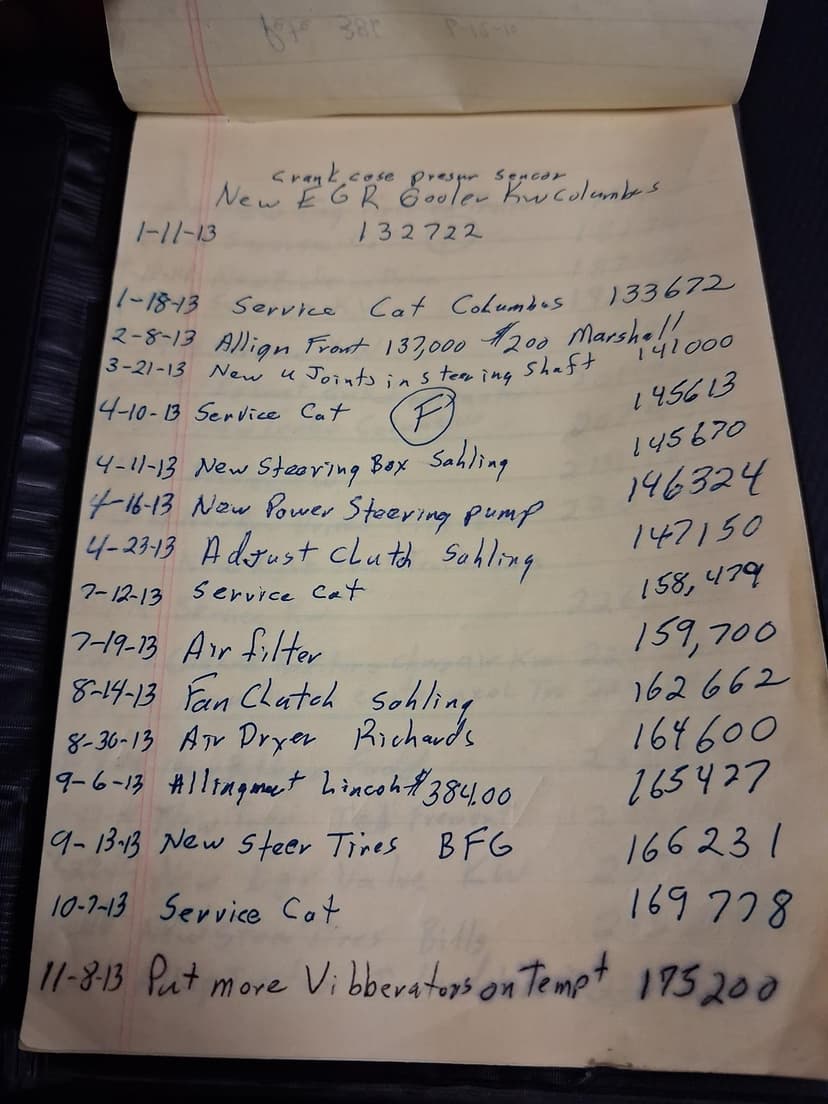 Crank case presur sencor
New EGR Cooler Kw Columbus
1-11-13 132722
1-18-13 Service Cat Columbus 133672
2-8-13 Allign Front 137,000 $200 Marshall
3-21-13 New u Joints in steering Shaft 141000
4-10-13 Service Cat F 145613
4-11-13 New Steering Box Sahling 145670
4-16-13 New Power Steering pump 146324
4-23-13 Adjust Cluth Sahling 147150
7-12-13 Service Cat 158,479
7-19-13 Air filter 159,700
8-14-13 Fan Clutch Sahling 162662
8-30-13 Air Dryer Richards 164600
9-6-13 Allingment Lincoln $384.00 165427
9-13-13 New Steer Tires BFG 166231
10-7-13 Service Cat 169778
11-8-13 Put more Vibberators on Tempt 175200